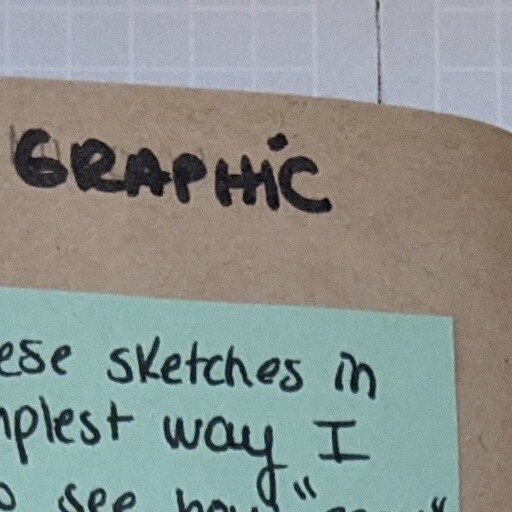 GRAPHiC
ese sketches in
mplest way I
o see how "